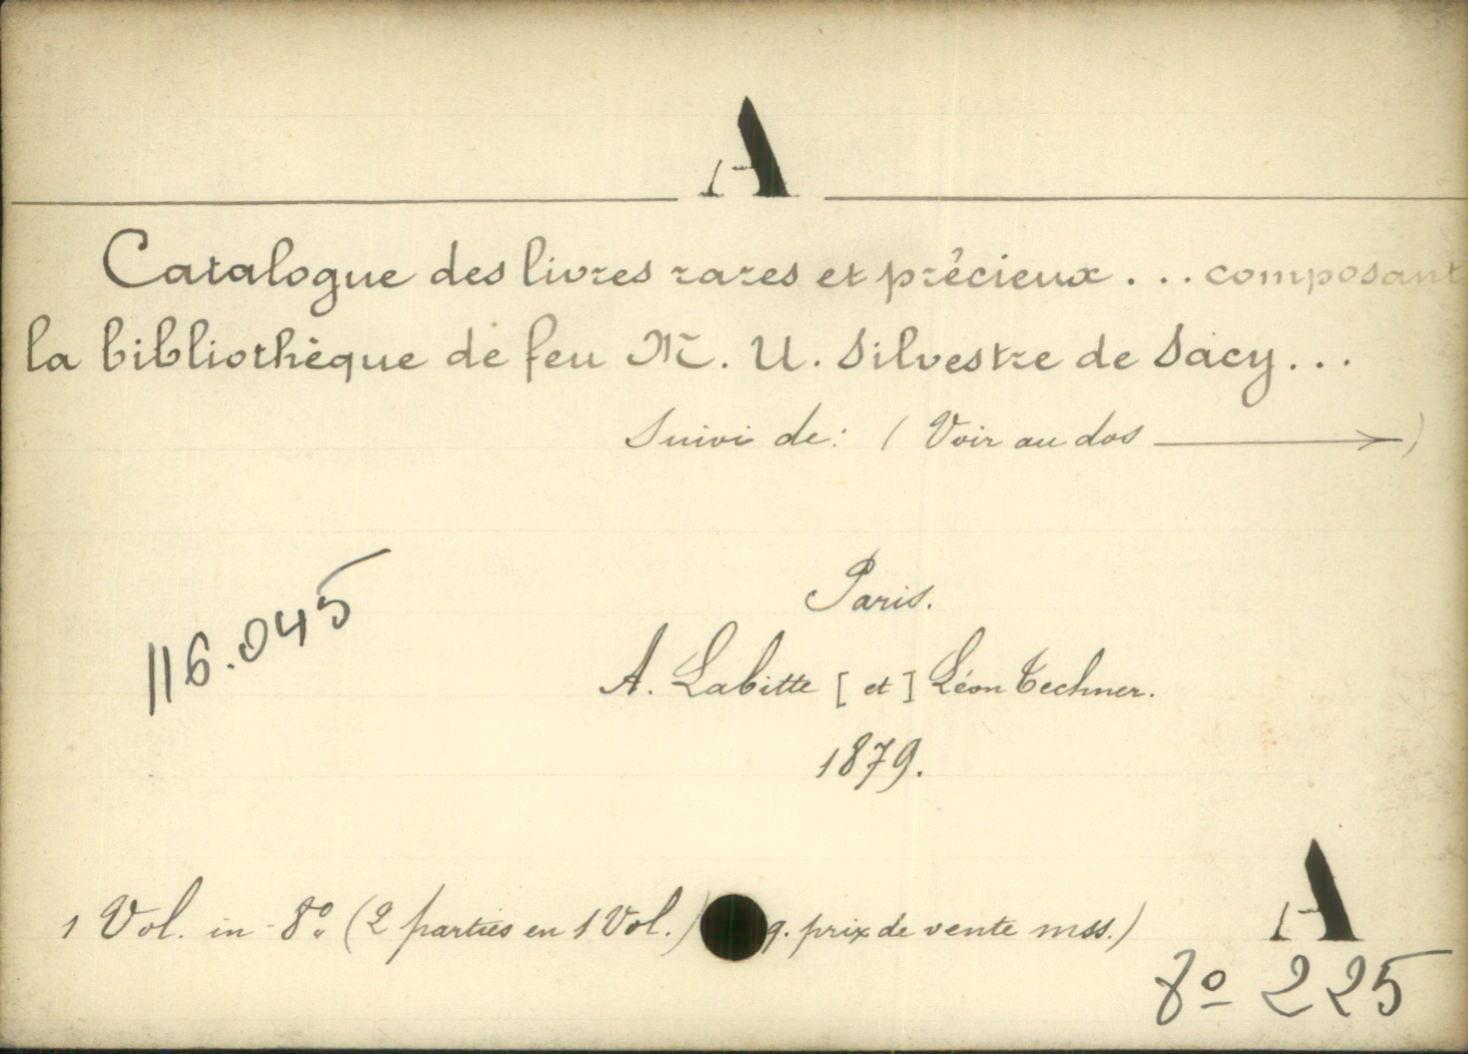 A
Catalogue des livres rares et précieux ... composant
la bibliothèque de feu M. U. Silvestre de Sacy...
Suivi de: (Voir au dos →)
116.045
Paris.
A. Labitte [et] Léon Techner.
1879.
1 Vol. in-8º. (2 parties en 1 Vol.) g. prix de vente mss.)
A
8º 225